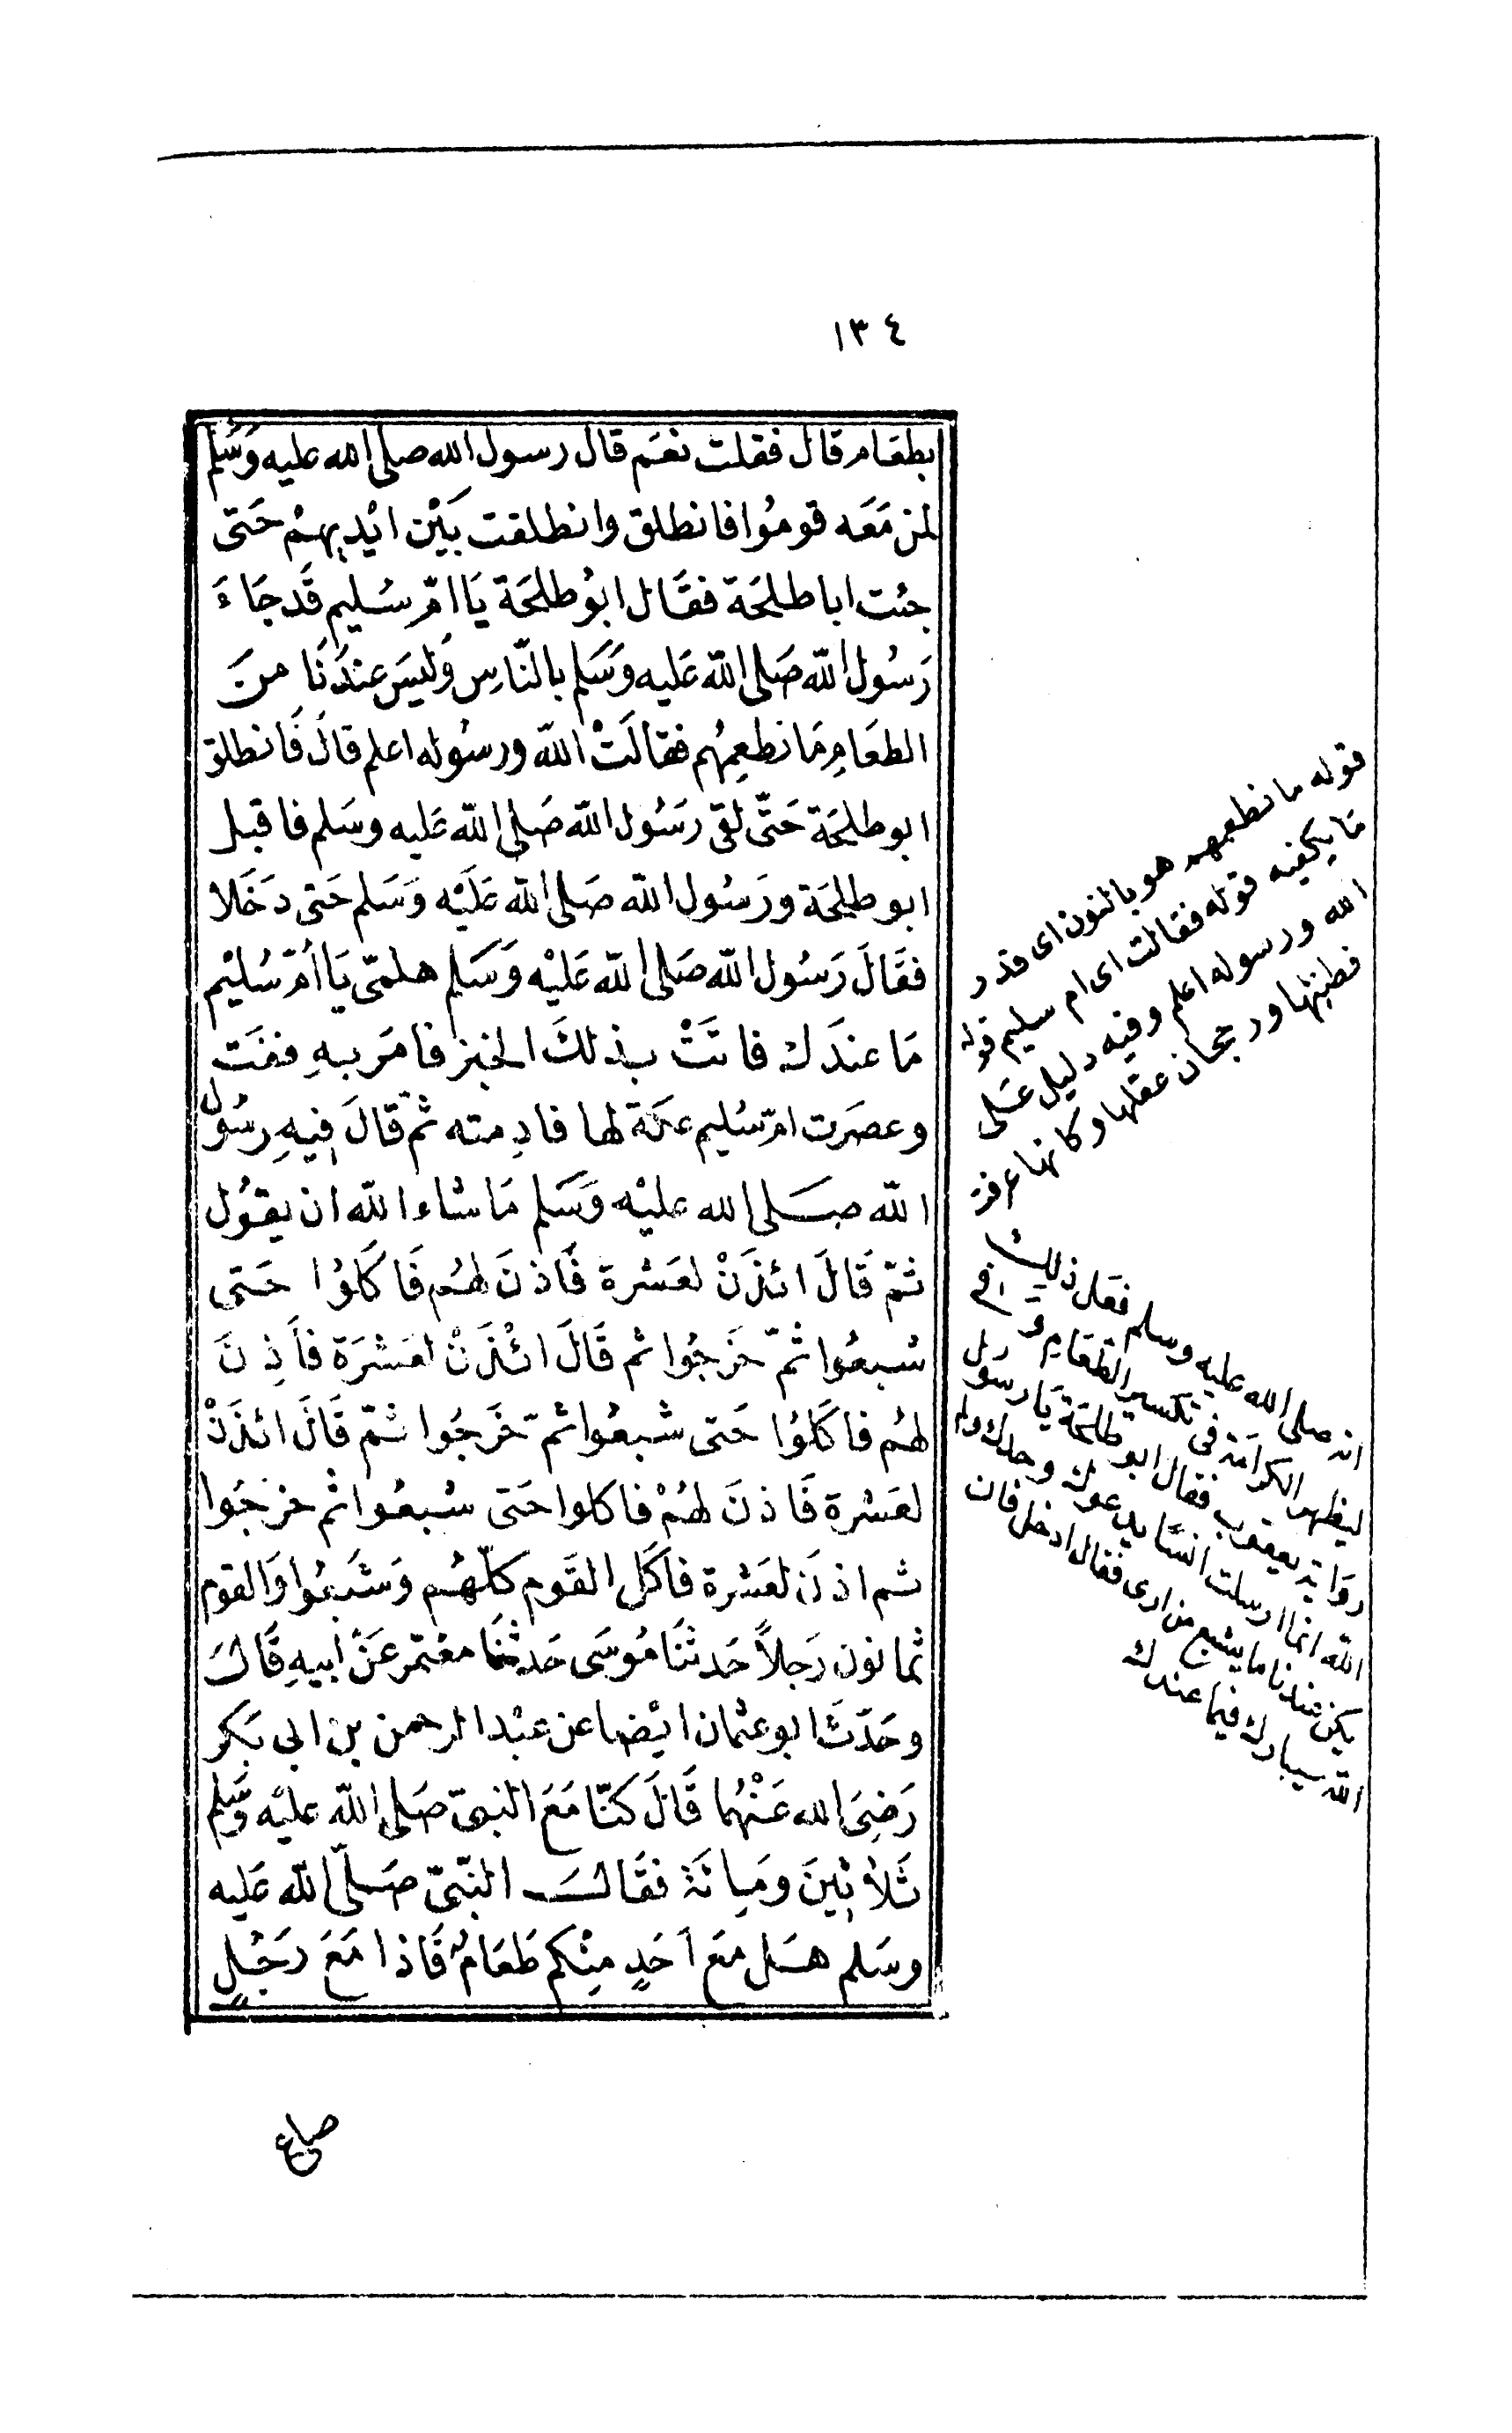 ١٣٤
بطعَام قال فقلت نعَم قال رسول الله صلى الله عليه وَسُلم
لمن مَعَه قومُوا فانطلق وانطلقت بَيْن ايْديهمْ حَتى
جئت ابا طلحَة فقَال ابوُ طلحَة يَا امّ سُليم قَد جَاءَ
رَسُول اللّه صَلى اللّه عَليه وَسَلم بالنّاسِ وَليسَ عندَنَا منَ
الطعَامِ مَا نطعِمُهم فقالَتْ اللّه ورسُوله اعلم قالَ فَانطلق
ابو طلحَة حَتّى لقى رَسُول اللّه صَلى اللّه عَليه وسَلم فاقبل
ابو طلحَة ورَسُول اللّه صَلى اللّه عَلَيْه وَسَلم حَتى دَخَلا
فقَالَ رَسُول اللّه صَلى اللّه عَليْه وَسَلم هلمّى يَا أمّ سُليْم
مَا عندَك فاتَتْ بذلكَ الخبز فامَر بهِ ففتَ
وعصَرت امّ سُليم عكة لها فادمته ثمّ قالَ فِيهِ رسُول
اللّه صَلى الله عليْه وَسَلم مَا شاء اللّه ان يقوُل
ثمّ قَالَ ائذَنْ لعَشرة فَاذنَ لهُم فَاكَلوُا حَتى
شبعُوا ثمّ خَرجُوا ثم قَالَ ائْذَنْ لعَشرَة فأَذِنَ
لهُم فاكَلوُا حَتى شبعُوا ثمّ خَرجُوا ثمّ قَالَ ائذَنْ
لعَشرة فَاذنَ لهُمْ فاكلوا حَتى شبعُوا ثم خرجُوا
ثم اذنَ لعَشرة فاَكَل القَوم كلّهُم وَشَبعُوا وَالقوم
ثمانون رَجلاً حَدثنَا مُوسَى حَدثنَا معْتمر عَنْ ابيهِ قَالَ
وحَدّثَ ابو عثمان ايْضا عن عبْد الرحمن بن ابى بَكر
رَضِىَ الله عَنْهُما قَالَ كنّا مَعَ النبىّ صَلى اللّه عليْه وسَلم
ثَلاثِينَ ومَِائَة فقَالَ النّبىّ صَلّى اللّه عَليه
وسَلم هَل مَع أحَدٍ مِنْكم طَعَامٌ فَاذا مَعَ رَجُلٍ
قوله ما نطعمهم هو بالنون اى قدر
مَا يكفيه قوله فقالت اى ام سليم قوله
الله ورسوله اعلم وفيه دليل عَلى
فطنتها ورجحان عقلها وكانها عرفت
انه صلى الله عليه وسلم فعَل ذلك
ليظهر الكرامَة فى تكسير الطعَام وفى
روَاية يعقوب فقال ابو طلحَة يَا رسول
اللّه انما ارسلت انسًا يدعوك وحدك ولم
يكن عندنا ما يشبع من ارى فقال ادخل فان
اللّه سيبارك فيما عندك
صاع